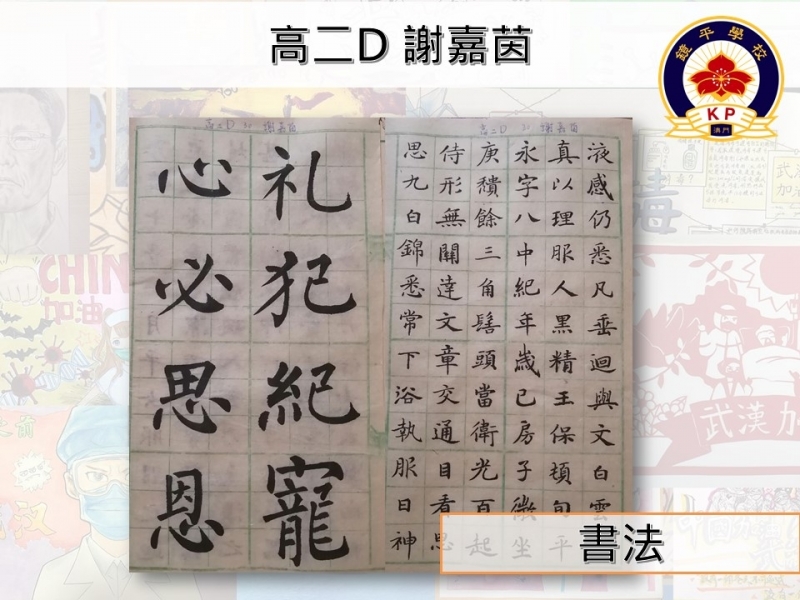 高二D 謝嘉茵
鏡平學校
KP
澳門
高二D 31 謝嘉茵
礼犯紀寵
心必思恩
高二D 31 謝嘉茵
液感仍悉凡垂迴與文白雲
真以理服人黑精王保頓旬平
永字八中紀年歲已房子微坐
庚積餘三角髻頭當衛光百起
侍形無關達文章交通目看思
思九白錦悉常下浴執服日神
CHIN
加油
武漢加
武漢
加油
毒
書法